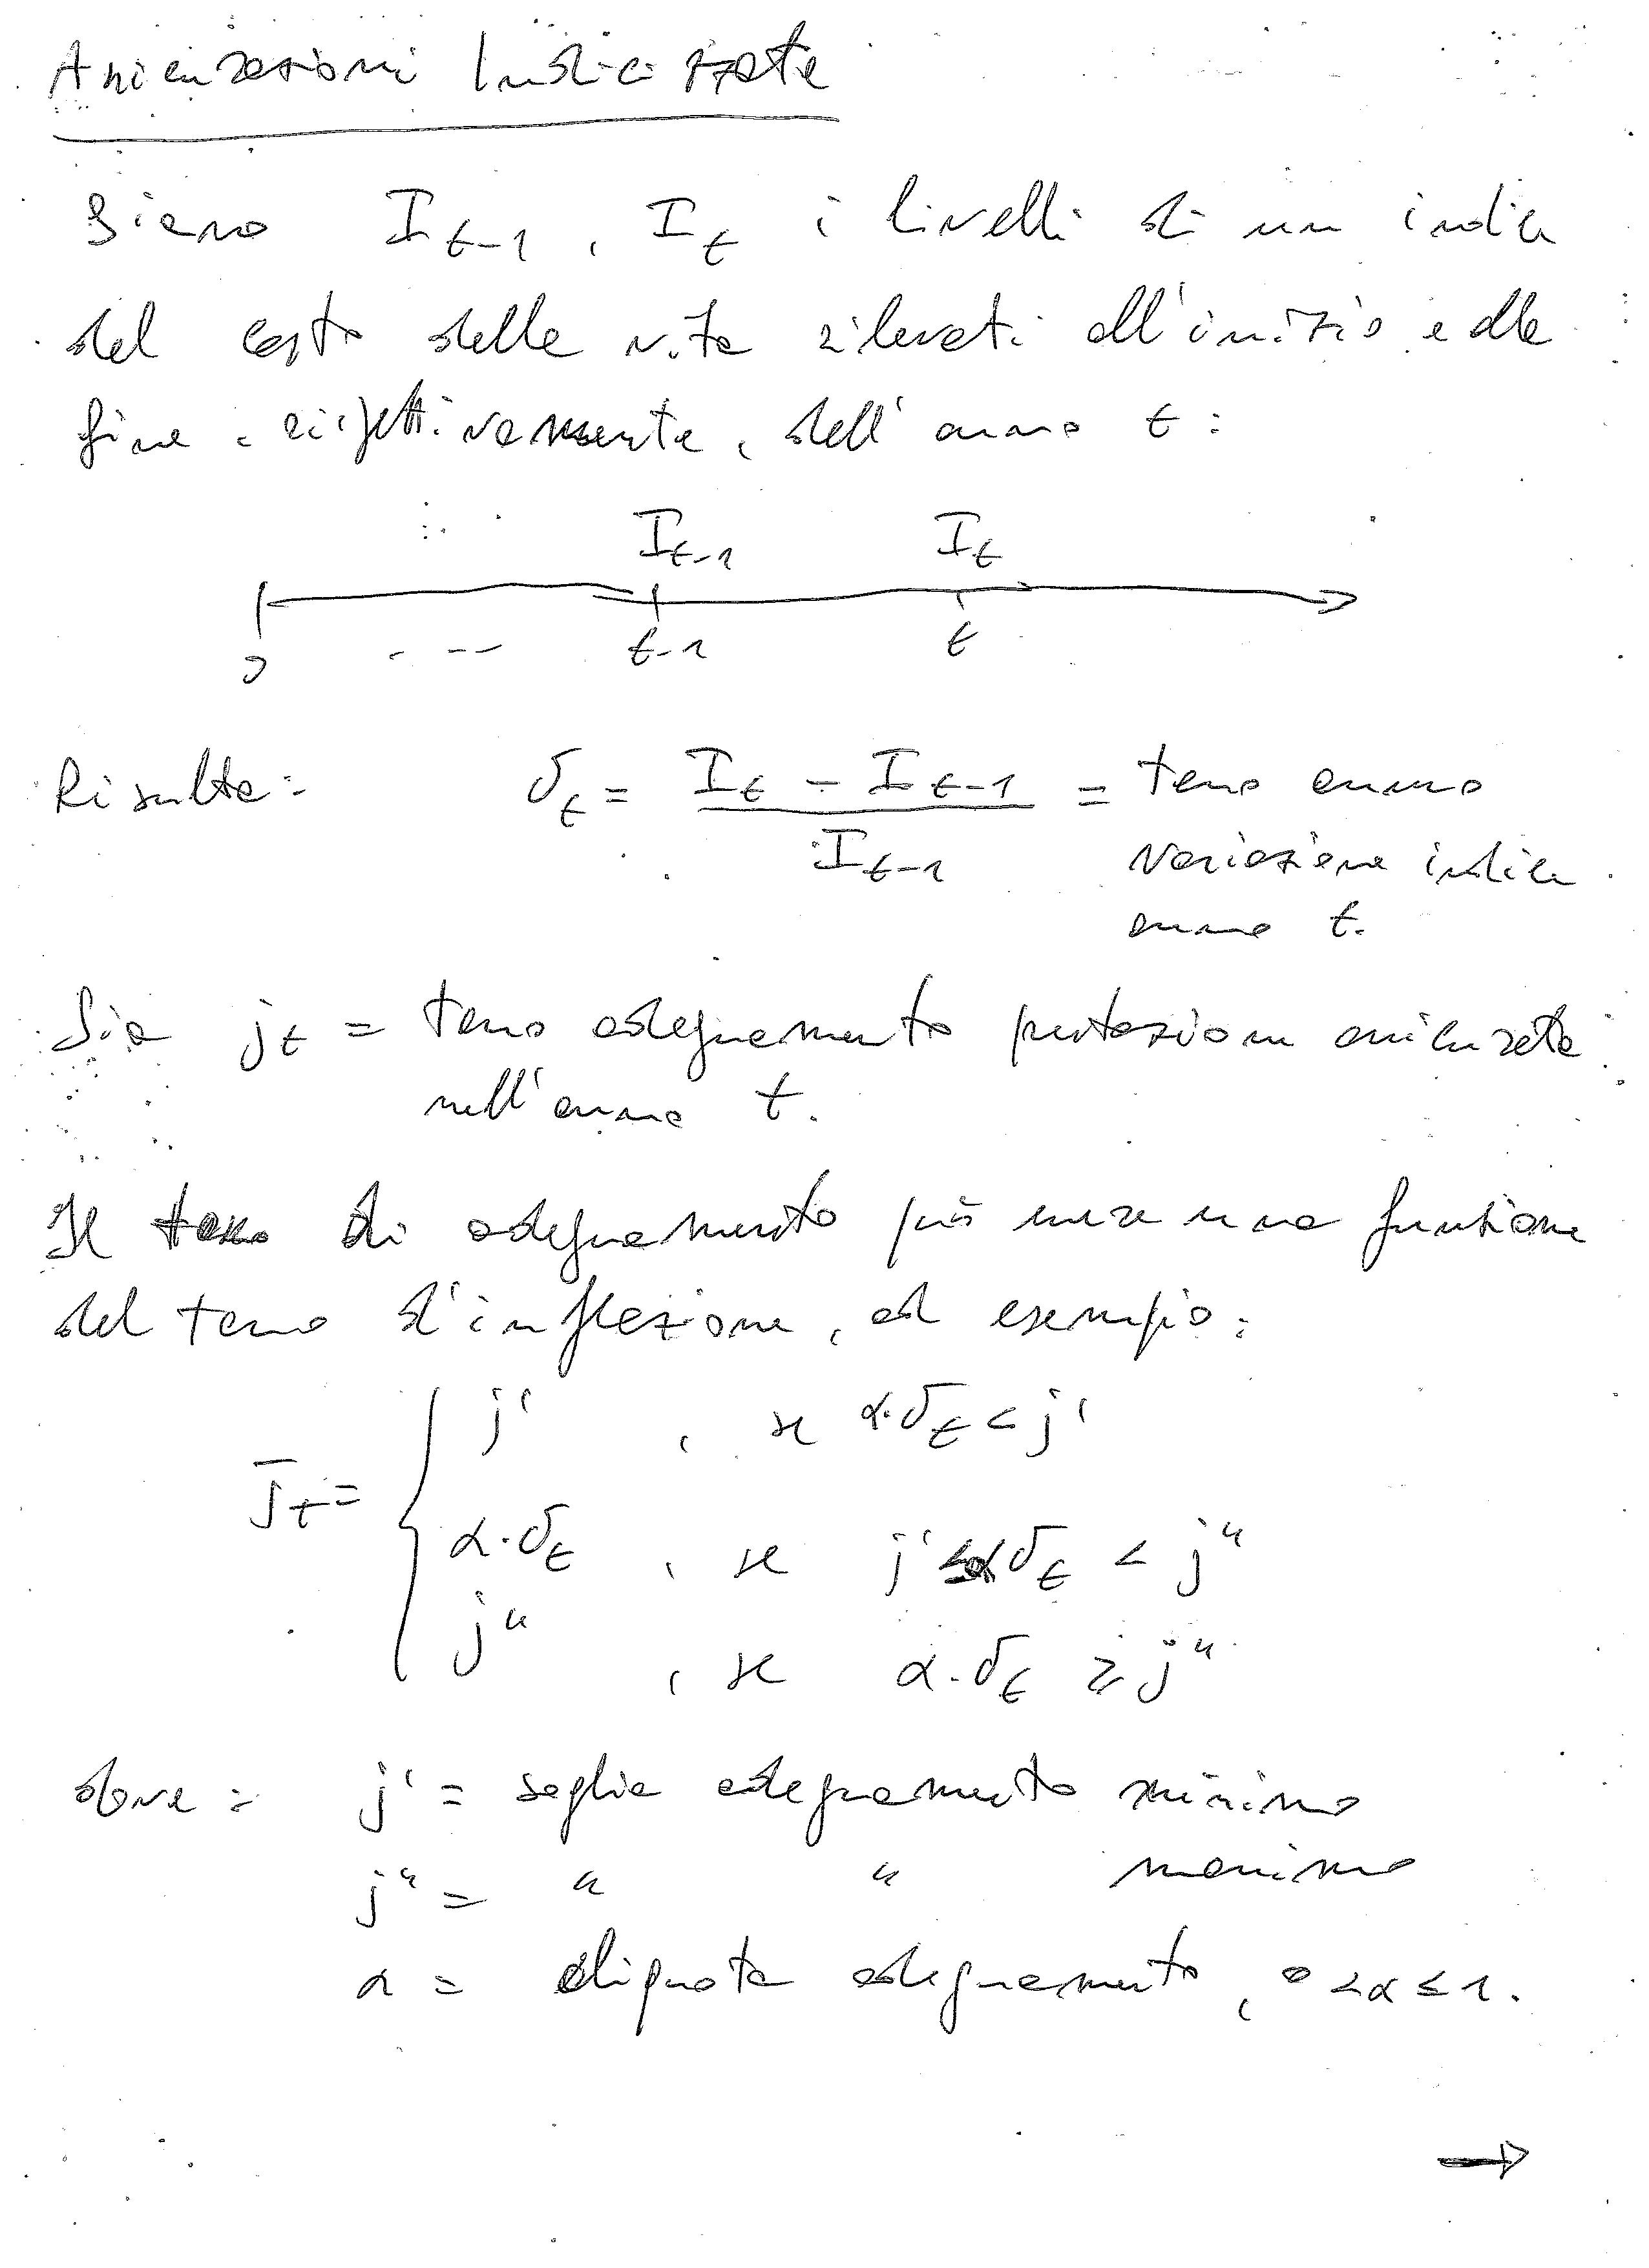 Assicurazioni Indicizzate
Siano I_{t-1}, I_t i livelli di un indice
del costo della vita rilevati all'inizio e alla
fine, rispettivamente, dell'anno t:
I_{t-1} I_t
0 ... t-1 t
Risulta: σ_t = (I_t - I_{t-1}) / I_{t-1} = tasso annuo
variazione indice
anno t.
Sia j_t = tasso adeguamento prestazioni assicurate
nell'anno t.
Il tasso di adeguamento può essere una funzione
del tasso d'inflazione, ad esempio:
j' , se α·σ_t < j'
j_t =
α·σ_t , se j' ≤ ασ_t < j"
j" , se α·σ_t ≥ j"
dove: j' = soglia adeguamento minimo
j" = " " massimo
α = aliquota adeguamento, 0 < α ≤ 1.
→